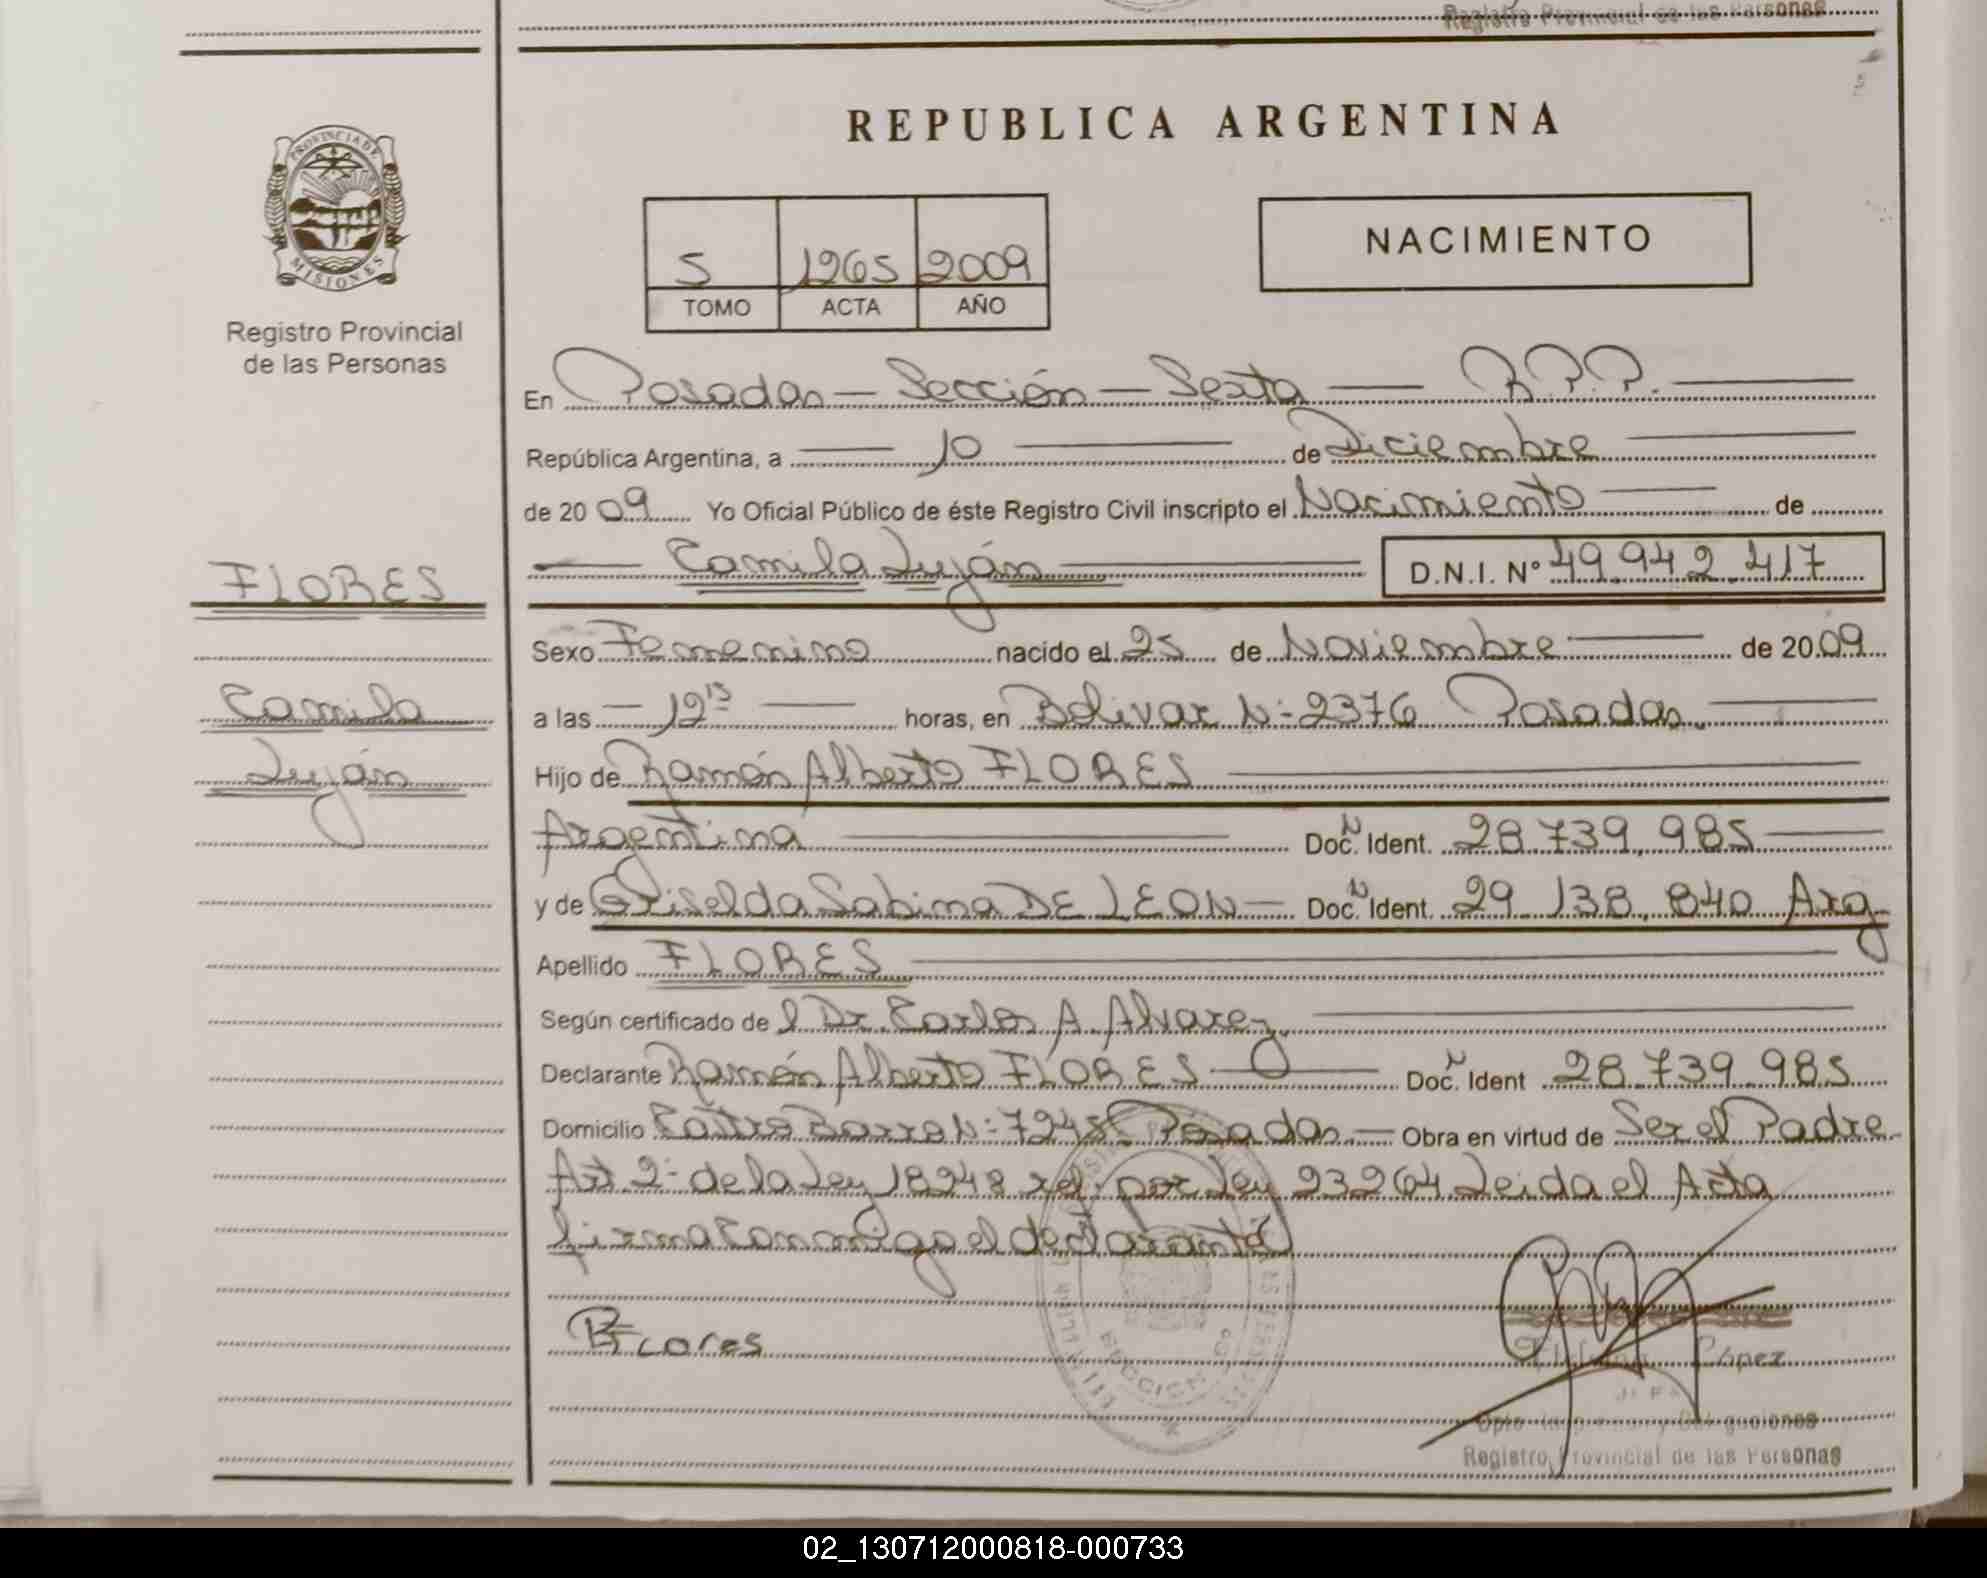 Registro Provincial de las Personas
PROVINCIA DE
MISIONES
Registro Provincial
de las Personas
FLORES
Camila
Luján
REPUBLICA ARGENTINA
5 1265 2009
TOMO ACTA AÑO
NACIMIENTO
En Posadas — Sección — Sexta — R.P.P. —
República Argentina, a — 10 — de Diciembre —
de 20 09 Yo Oficial Público de éste Registro Civil inscripto el Nacimiento — de
— Camila Luján — D.N.I. Nº 49.942.417
Sexo Femenino nacido el 25 de Noviembre — de 20 09
a las — 12 15 — horas, en Bolivar N: 2376 Posadas. —
Hijo de Ramón Alberto FLORES —
Argentina — Doc. N Ident. 28.739.985 —
y de Griselda Sabina DE LEON — Doc. N Ident. 29.138.840 Arg
Apellido FLORES —
Según certificado de l Dr. Carlos A. Alvarez. —
Declarante Ramón Alberto FLORES — Doc. N Ident 28.739.985
Domicilio Castro Barro N: 7248 Posadas. — Obra en virtud de Ser el Padre
Art. 2: de la Ley 18248 ref. por Ley 23264. Leida el Acta
firma conmigo el declarante
RFLores
SECCION 6º
López
JEFA
Dpto. Inspección y Delegaciones
Registro Provincial de las Personas
02_130712000818-000733